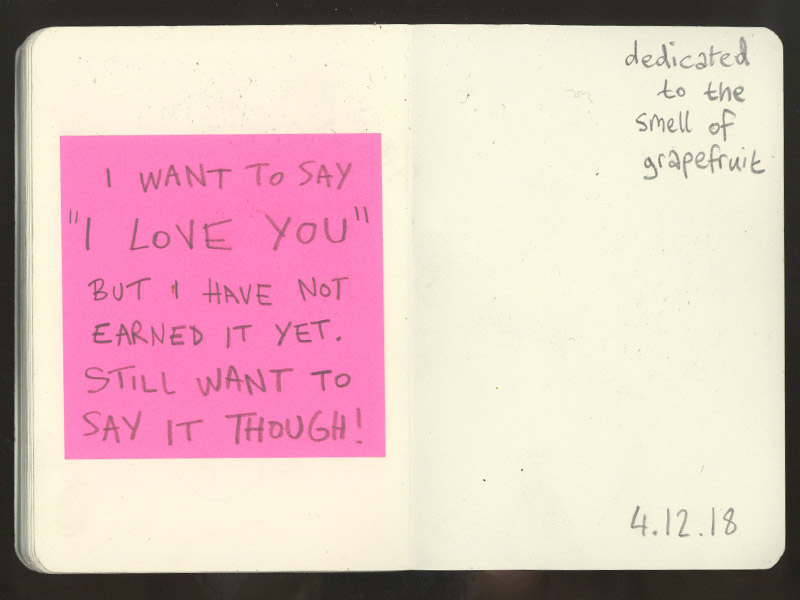 I WANT TO SAY
"I LOVE YOU"
BUT I HAVE NOT
EARNED IT YET.
STILL WANT TO
SAY IT THOUGH!
dedicated
to the
smell of
grapefruit
4.12.18